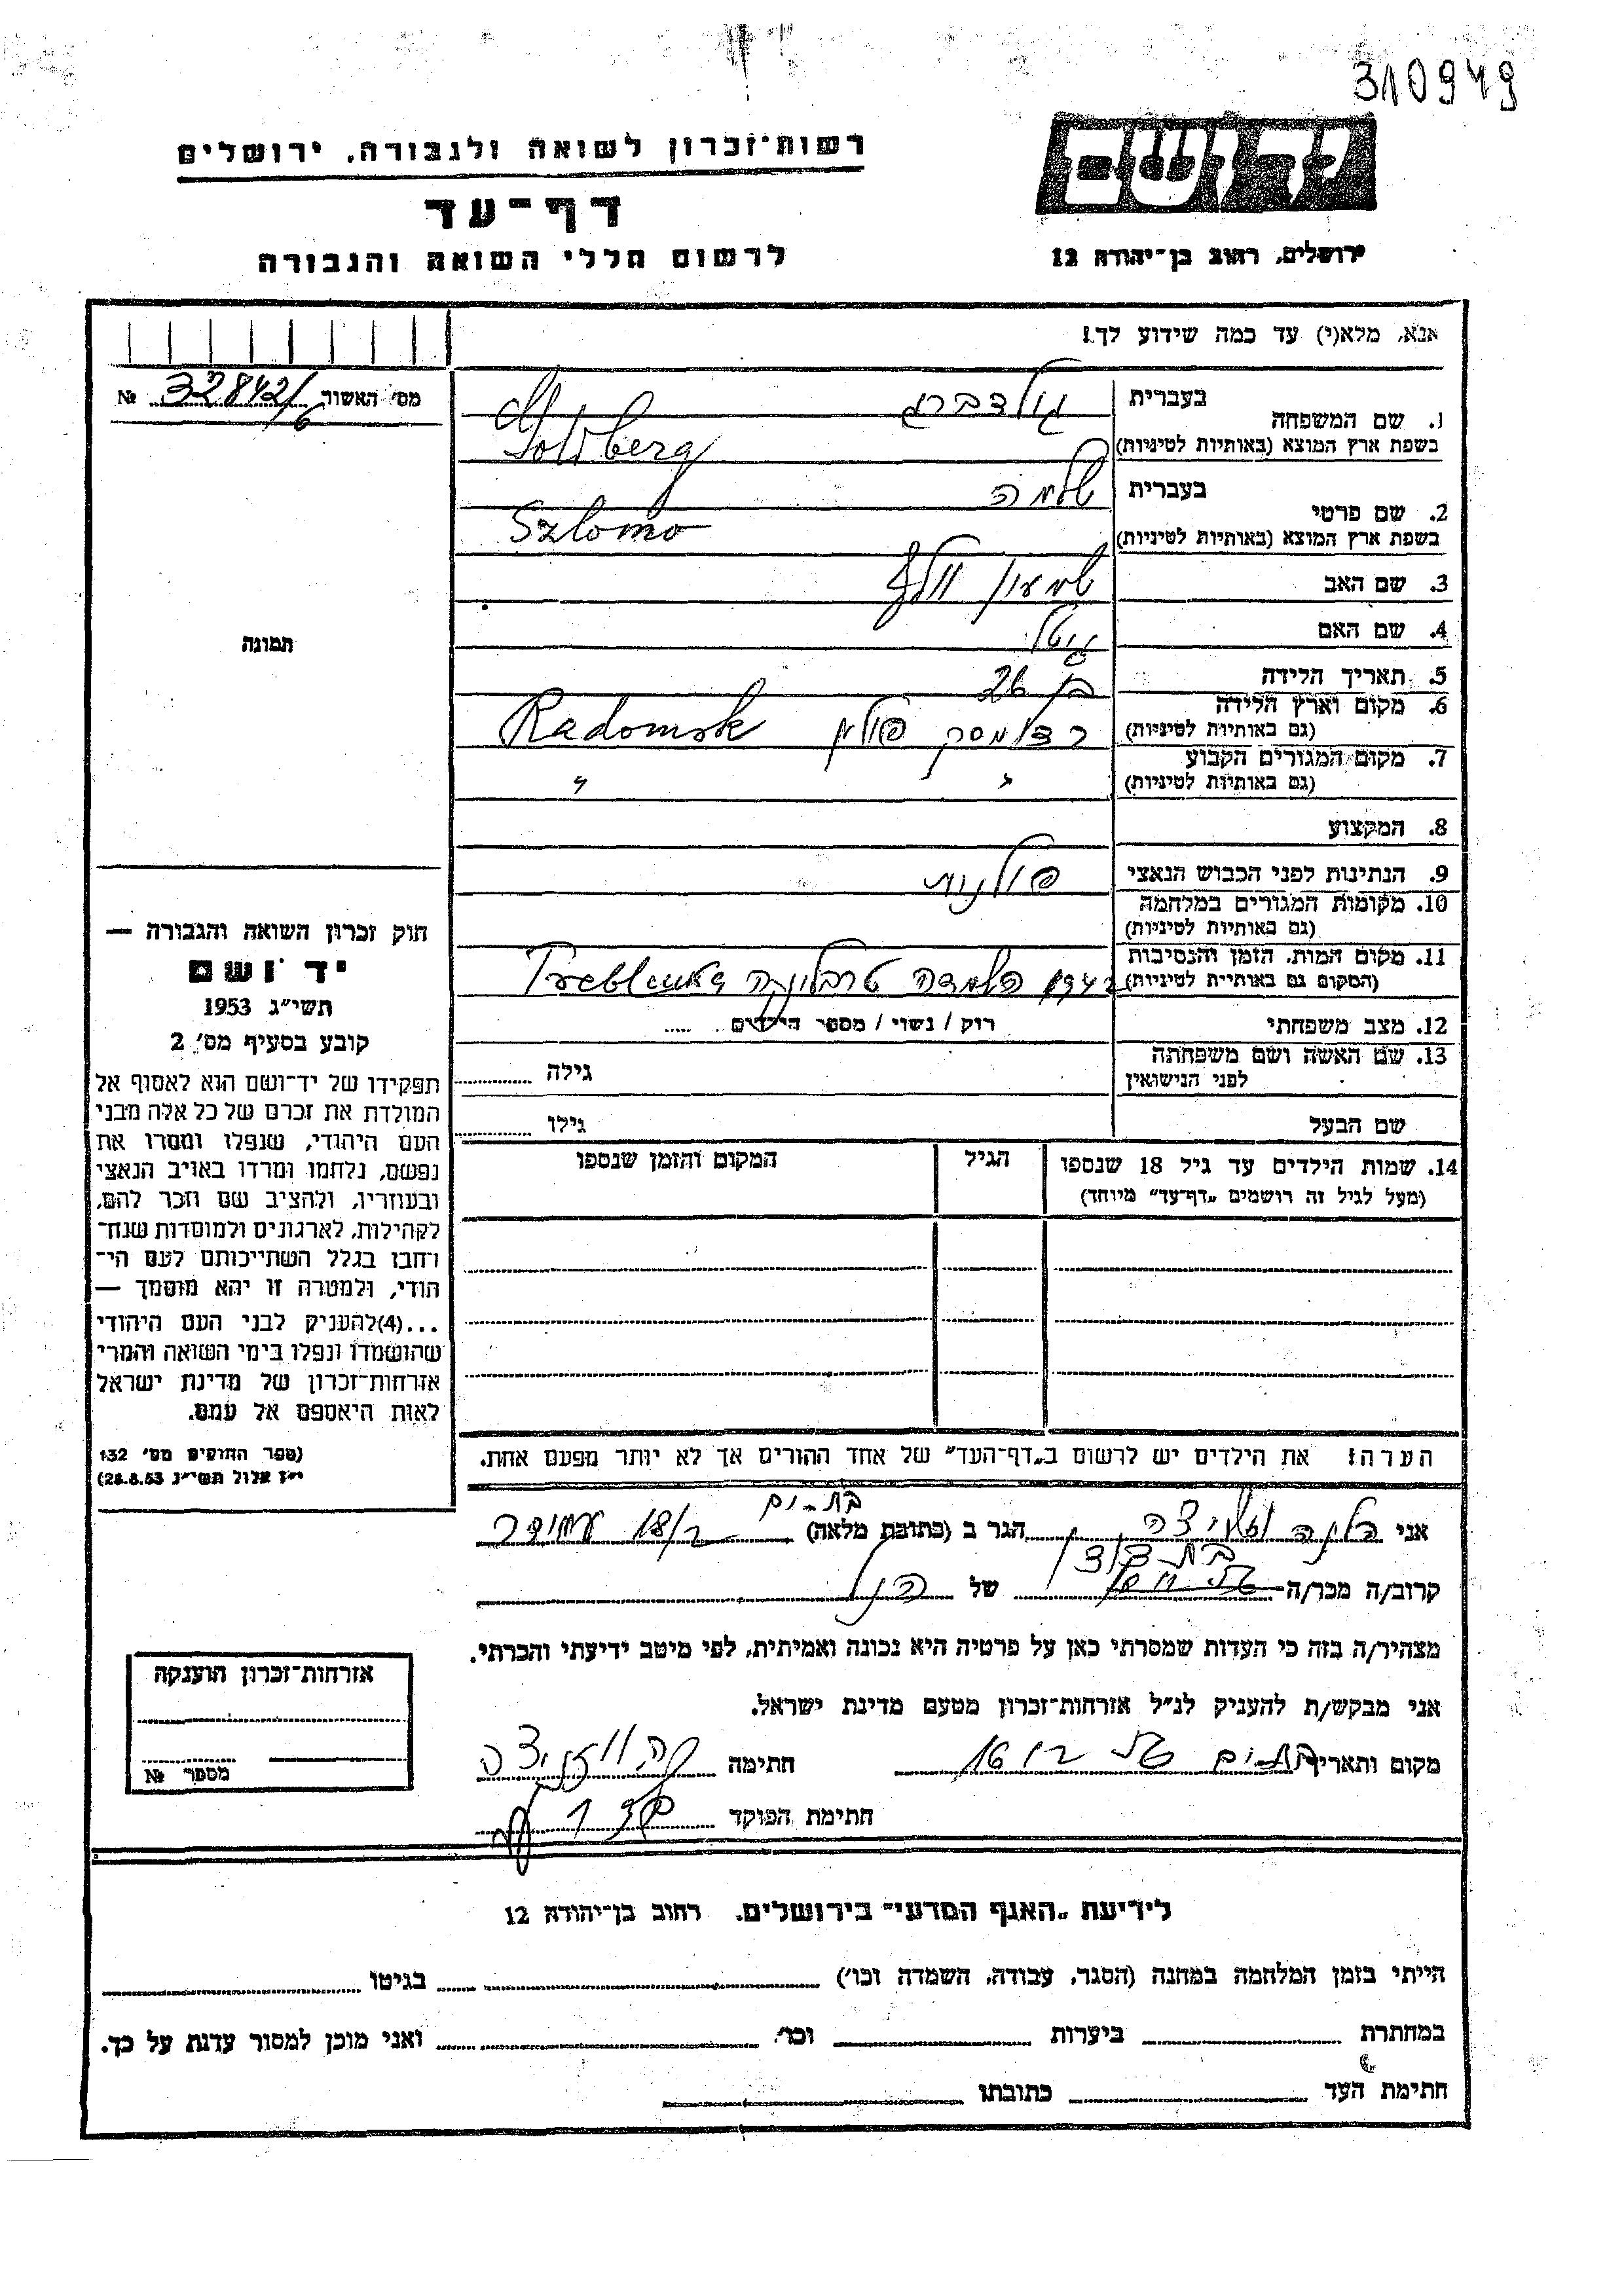 310949
יד ושם
רשות־זכרון לשואה ולגבורה, ירושלים
דף־עד
לרשום חללי השואה והגבורה
ירושלים, רחוב בן־יהודה 12
אנא, מלא(י) עד כמה שידוע לך!
מס׳ האשור 32842/6 №
1. שם המשפחה
בעברית גולדברג
בשפת ארץ המוצא (באותיות לטיניות) Goldberg
2. שם פרטי
בעברית שלמה
בשפת ארץ המוצא (באותיות לטיניות) Szlomo
3. שם האב שמעון וולף
4. שם האם גיטל
5. תאריך הלידה בן 26
6. מקום וארץ הלידה
(גם באותיות לטיניות) רדומסק פולין Radomsk
7. מקום המגורים הקבוע
(גם באותיות לטיניות) " "
8. המקצוע
9. הנתינות לפני הכבוש הנאצי פולנית
10. מקומות המגורים במלחמה
(גם באותיות לטיניות)
11. מקום המות, הזמן והנסיבות
(המקום גם באותיות לטיניות) 1942 השמדה טרבלינקה Treblenka
12. מצב משפחתי רווק / נשוי / מספר הילדים .....
13. שם האשה ושם משפחתה
לפני הנישואין גילה
שם הבעל גילו
14. שמות הילדים עד גיל 18 שנספו הגיל המקום והזמן שנספו
(מעל לגיל זה רושמים „דף־עד״ מיוחד)
הערה: את הילדים יש לרשום ב„דף־העד״ של אחד ההורים אך לא יותר מפעם אחת.
תמונה
חוק זכרון השואה והגבורה —
יד ושם
תשי״ג 1953
קובע בסעיף מס׳ 2
תפקידו של יד־ושם הוא לאסוף אל
המולדת את זכרם של כל אלה מבני
העם היהודי, שנפלו ומסרו את
נפשם, נלחמו ומרדו באויב הנאצי
ובעוזריו, ולהציב שם וזכר להם,
לקהילות, לארגונים ולמוסדות שנח־
רחבו בגלל השתייכותם לעם הי־
הודי, ולמטרה זו יהא מוסמך —
...(4) להעניק לבני העם היהודי
שהושמדו ונפלו בימי השואה והמרי
אזרחות־זכרון של מדינת ישראל
לאות היאספם אל עמם.
(ספר החוקים מס׳ 132
י״ז אלול תשי״ג 28.8.53)
בת-ים
אני הלנה הגר ב (כתובת מלאה) 18/2 עמידר
בת דוד
קרוב/ה מכר/ה של הנ״ל
מצהיר/ה בזה כי העדות שמסרתי כאן על פרטיה היא נכונה ואמיתית, לפי מיטב ידיעתי והכרתי.
אני מבקש/ת להעניק לנ״ל אזרחות־זכרון מטעם מדינת ישראל.
מקום ותאריך חתימה
חתימת הפוקד
אזרחות־זכרון הוענקה
מספר №
לידיעת „האגף המדעי״ בירושלים, רחוב בן־יהודה 12
הייתי בזמן המלחמה במחנה (הסגר, עבודה, השמדה וכו׳) בגיטו
במחתרת ביערות וכו׳ ואני מוכן למסור עדות על כך.
חתימת העד כתובתו